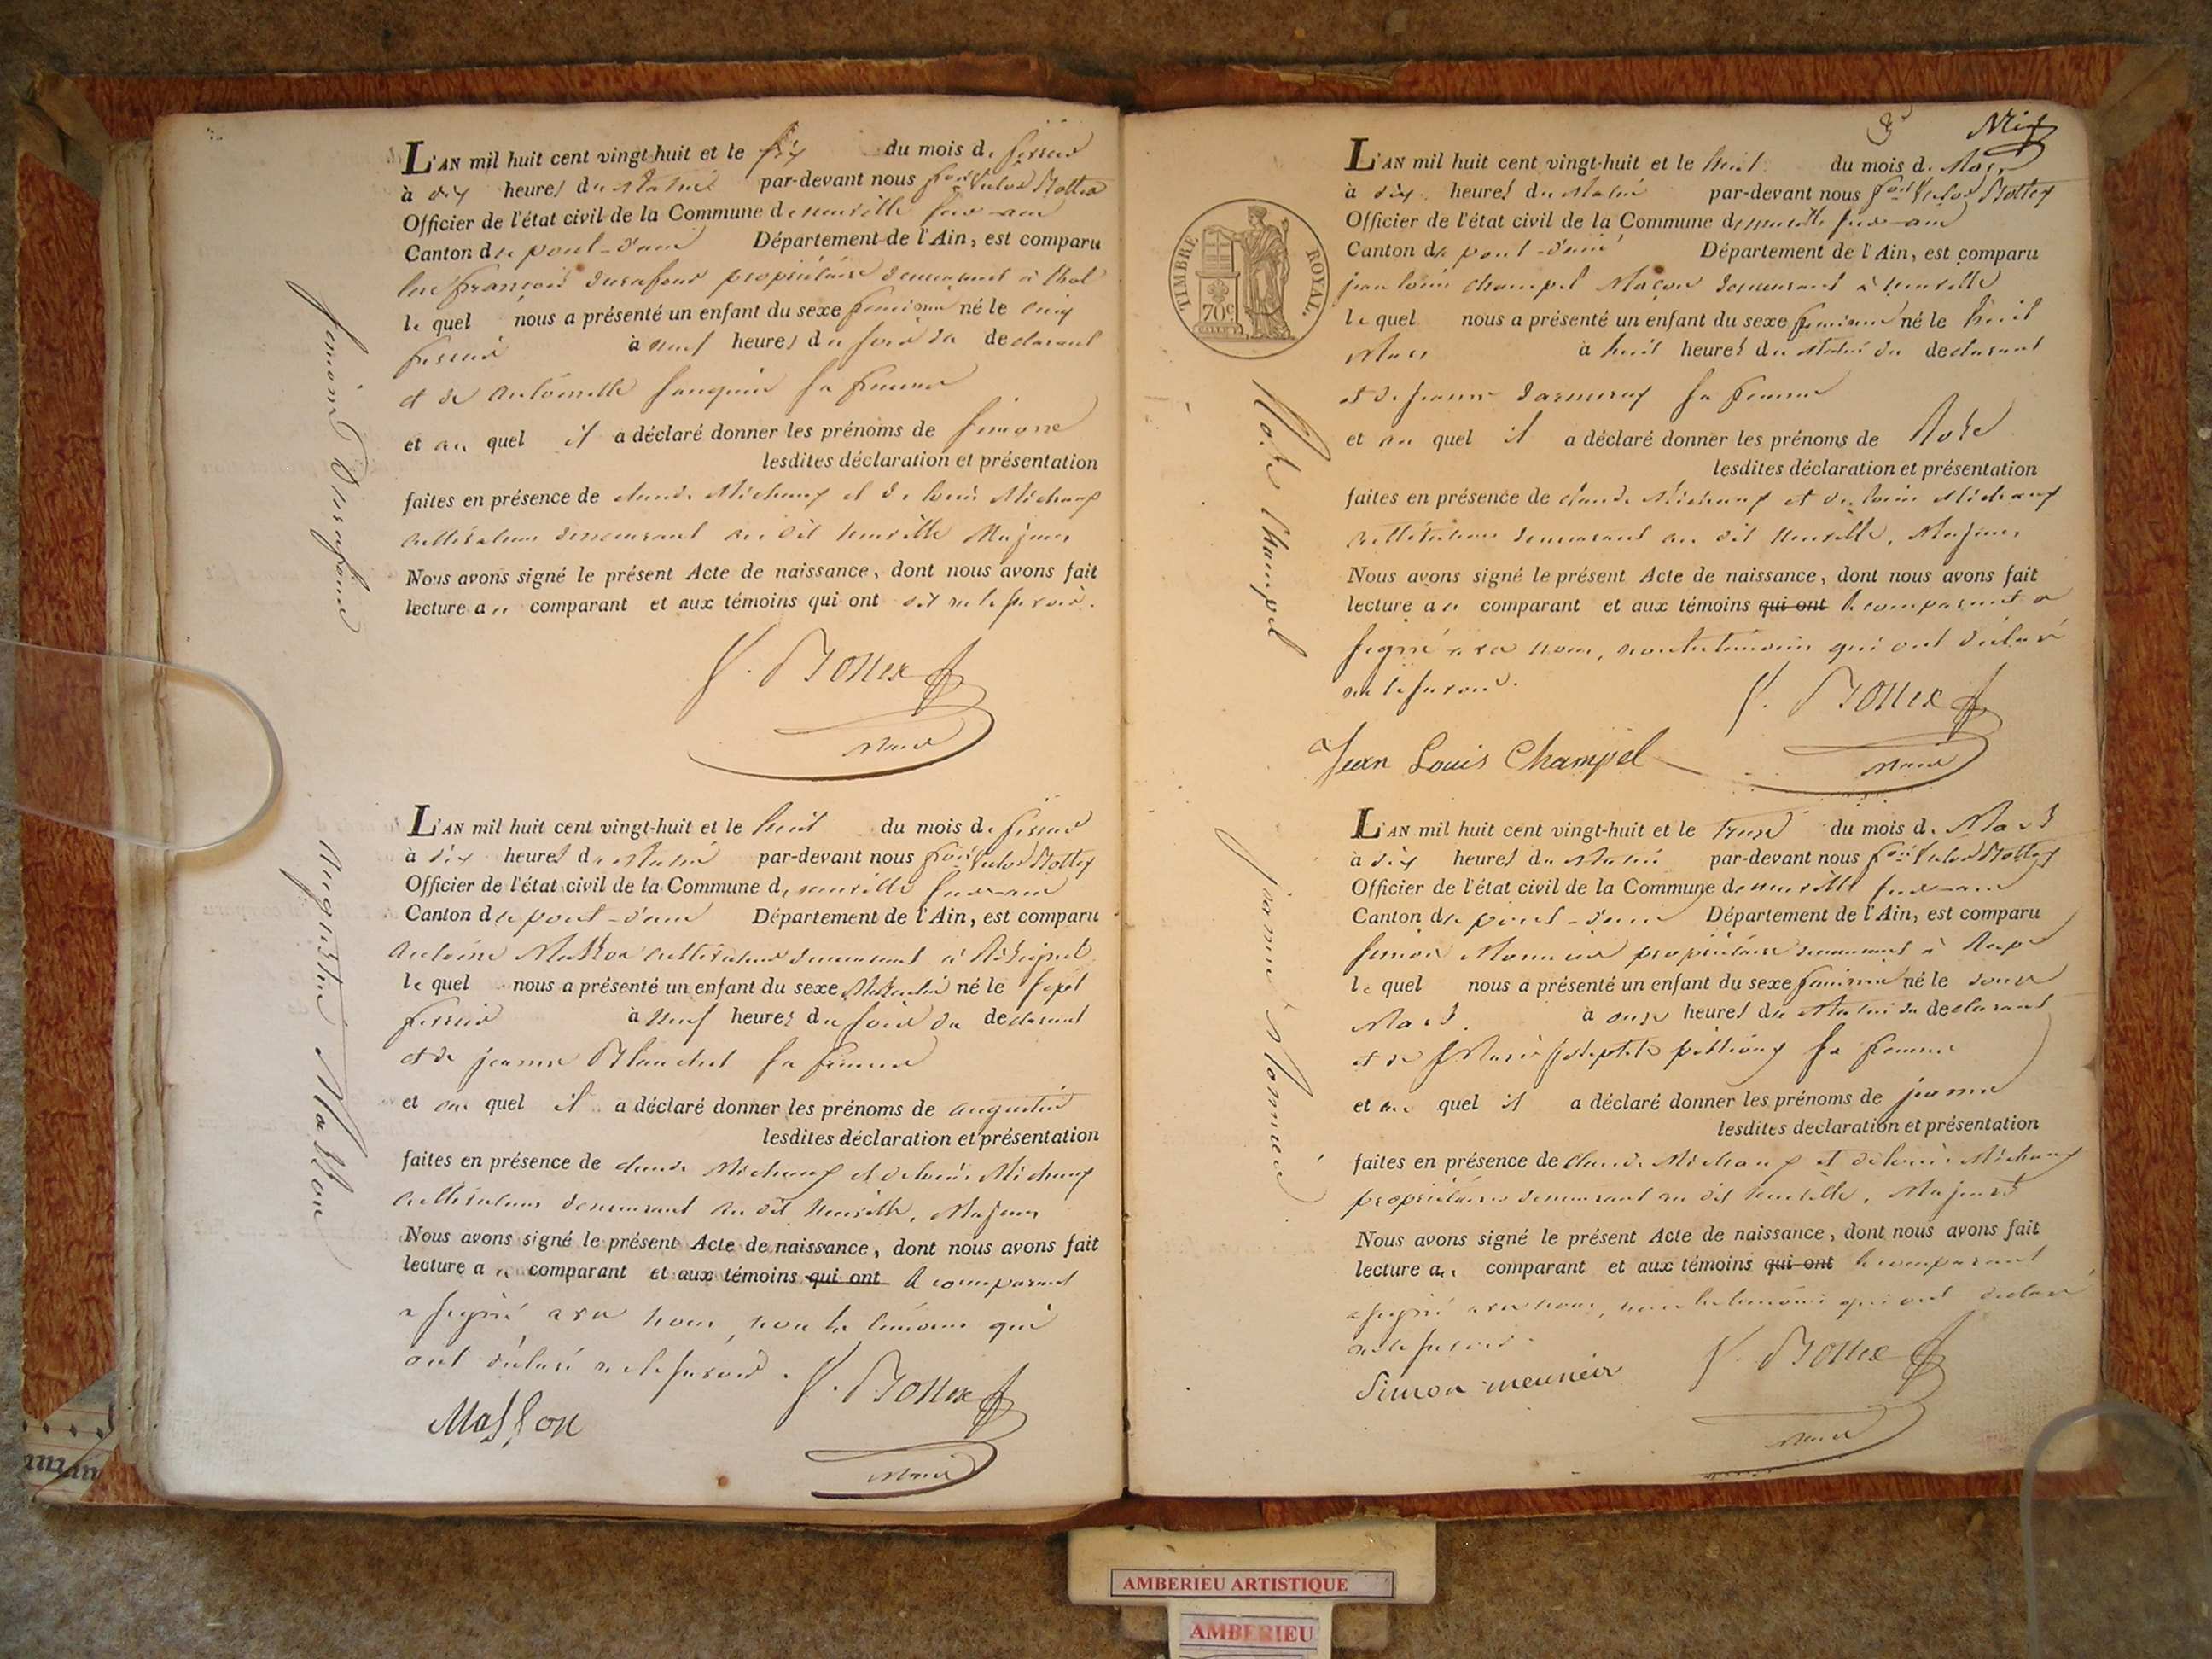 L'AN mil huit cent vingt-huit et le six du mois de fevrier
à dix heures du matin par-devant nous f.ois Victor Bottex
Officier de l'état civil de la Commune de neuville sur-ain
Canton de pont-d'ain Département de l'Ain, est comparu
luc françois durafour propriétaire demeurant à thol
le quel nous a présenté un enfant du sexe feminin né le cinq
fevrier à neuf heures du soir du declarant
et de antoinette sa femme
et au quel il a déclaré donner les prénoms de simone
lesdites déclaration et présentation
faites en présence de claude Michaux et de louis Michaux
cultivateurs demeurant au dit neuville Majeurs
Nous avons signé le présent Acte de naissance, dont nous avons fait
lecture au comparant et aux témoins qui ont dit ne le savoir.
V. Bottex
Maire
simone Durafour
L'AN mil huit cent vingt-huit et le huit du mois de fevrier
à dix heures du matin par-devant nous f.ois Victor Bottex
Officier de l'état civil de la Commune de neuville sur-ain
Canton de pont-d'ain Département de l'Ain, est comparu
antoine Masson cultivateur demeurant à
le quel nous a présenté un enfant du sexe Masculin né le sept
fevrier à neuf heures du soir du declarant
et de jeanne Blanchet sa femme
et au quel il a déclaré donner les prénoms de augustin
lesdites déclaration et présentation
faites en présence de claude Michaux et de louis Michaux
cultivateurs demeurant au dit Neuville, Majeurs
Nous avons signé le présent Acte de naissance, dont nous avons fait
lecture au comparant et aux témoins qui ont le comparant
a signé avec nous, non les témoins qui
ont déclaré ne le savoir.
V. Bottex
Masson
Maire
Augustin Masson
3
L'AN mil huit cent vingt-huit et le huit du mois de Mars
à dix heures du matin par-devant nous f.ois Victor Bottex
Officier de l'état civil de la Commune de neuville sur-ain
Canton de pont-d'ain Département de l'Ain, est comparu
jean louis champel Maçon demeurant à neuville
le quel nous a présenté un enfant du sexe feminin né le huit
Mars à huit heures du matin du declarant
et de jeanne sa femme
et au quel il a déclaré donner les prénoms de Rose
lesdites déclaration et présentation
faites en présence de claude Michaux et de louis Michaux
cultivateurs demeurant au dit Neuville, Majeurs
Nous avons signé le présent Acte de naissance, dont nous avons fait
lecture au comparant et aux témoins qui ont le comparant a
signé avec nous, non les témoins qui ont déclaré
ne le savoir.
V. Bottex
Jean Louis Champel
Maire
Rose Champel
TIMBRE ROYAL.
70c
L'AN mil huit cent vingt-huit et le treize du mois de Mars
à dix heures du matin par-devant nous f.ois Victor Bottex
Officier de l'état civil de la Commune de neuville sur-ain
Canton de pont-d'ain Département de l'Ain, est comparu
simon Monnier propriétaire demeurant à
le quel nous a présenté un enfant du sexe feminin né le douze
Mars à onze heures du matin du declarant
et de Marie sa femme
et au quel il a déclaré donner les prénoms de jeanne
lesdites declaration et présentation
faites en présence de claude Michaux et de louis Michaux
propriétaires demeurant au dit neuville, Majeurs
Nous avons signé le présent Acte de naissance, dont nous avons fait
lecture au comparant et aux témoins qui ont le comparant
a signé avec nous, non les témoins qui ont déclaré
ne le savoir.
V. Bottex
Simon meunier
Maire
jeanne Monnier
AMBERIEU ARTISTIQUE
AMBERIEU